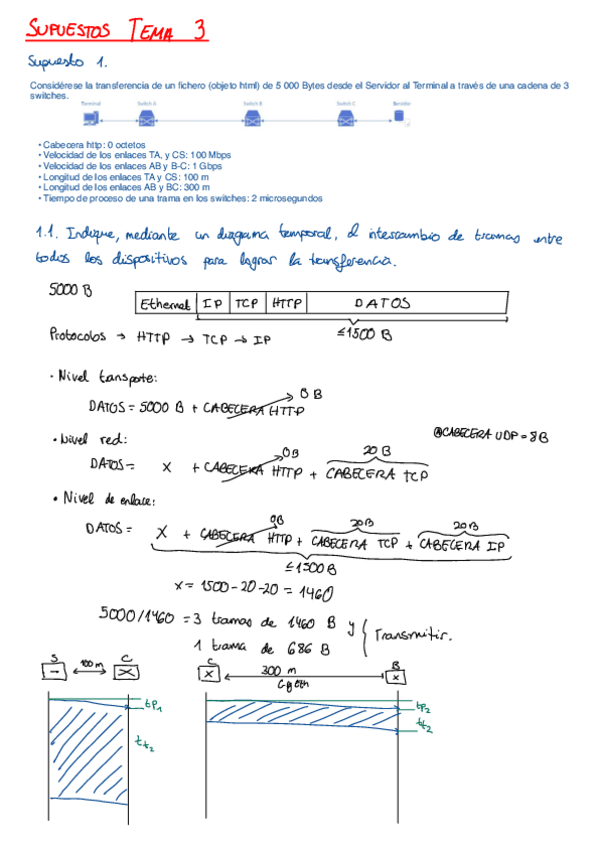 SUPUESTOS TEMA 3
Supuesto 1.
Considérese la transferencia de un fichero (objeto html) de 5 000 Bytes desde el Servidor al Terminal a través de una cadena de 3
switches.
Terminal Switch A Switch B Switch C Servidor
• Cabecera http: 0 octetos
• Velocidad de los enlaces TA, y CS: 100 Mbps
• Velocidad de los enlaces AB y B-C: 1 Gbps
• Longitud de los enlaces TA y CS: 100 m
• Longitud de los enlaces AB y BC: 300 m
• Tiempo de proceso de una trama en los switches: 2 microsegundos
1.1. Indique, mediante un diagrama temporal, el intercambio de tramas entre
todos los dispositivos para lograr la transferencia.
5000 B
Ethernet IP TCP HTTP DATOS
≤1500 B
Protocolos → HTTP → TCP → IP
· Nivel transporte:
0 B
DATOS = 5000 B + CABECERA HTTP
@CABECERA UDP = 8B
· Nivel red:
0B 20 B
DATOS = X + CABECERA HTTP + CABECERA TCP
• Nivel de enlace:
0B 20B 20B
DATOS = X + CABECERA HTTP + CABECERA TCP + CABECERA IP
≤1500 B
x = 1500-20-20 = 1460
5000/1460 = 3 tramas de 1460 B y
1 trama de 686 B
Transmitir.
S 100 m C
C 300 m B
Gg Eth
tp1
tt2
tp2
tt2